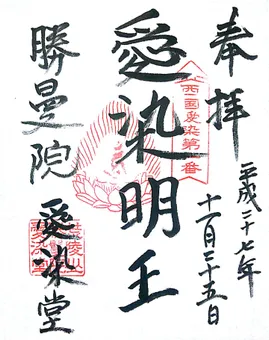 奉拝
平成二十七年
十一月二十五日
西国愛染第一番
愛染明王
勝曼院
愛染堂